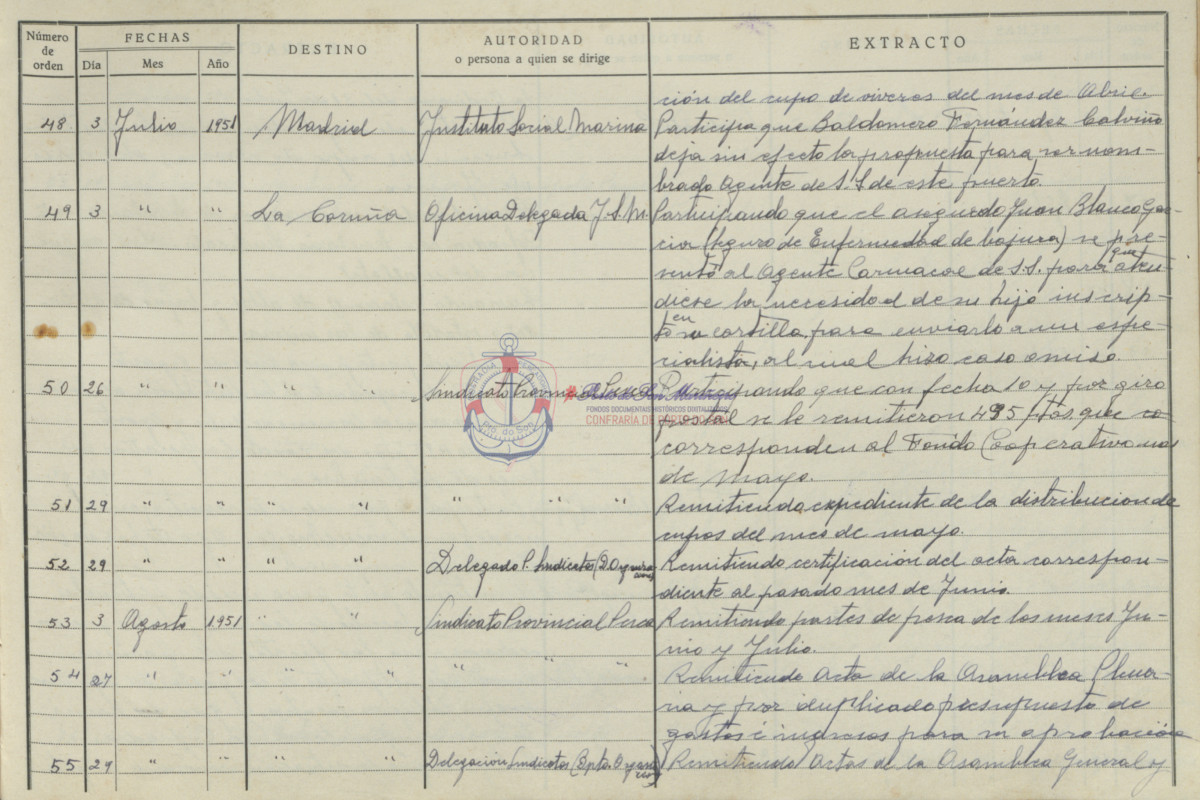 Número de orden FECHAS DESTINO AUTORIDAD o persona a quien se dirige EXTRACTO
Día Mes Año
ción del cupo de viveres del mes de Abril.
48 3 Julio 1951 Madrid Instituto Social Marina Participa que Baldomero Fernández Calviño
deja sin efecto la propuesta para ser nom-
brado Agente de S.S. de este puerto.
49 3 " " La Coruña Oficina Delegada I.S.M. Participando que el asegurdo Juan Blanco Gar-
cia (Seguro de Enfermedad de bajura) se pre-
sentó al Agente Comarcal de S.S. para que aten-
diese la necesidad de su hijo inscrip-
to en su cartilla, para enviarlo a un espe-
cialista, al cual hizo caso omiso.
50 26 " " " " Sindicato Provincial Pesca Participando que con fecha 10 y por giro
postal se le remitieron 495 ptas. que
corresponden al Fondo Cooperativo
de Mayo.
51 29 " " " " " " " Remitiendo expediente de la distribucion de
cupos del mes de mayo.
52 29 " " " " Delegado P. Sindicatos Remitiendo certificación del acta correspon-
diente al pasado mes de Junio.
53 3 Agosto 1951 " " Sindicato Provincial Pesca Remitiendo partes de pesca de los meses Ju-
nio y Julio.
54 27 " " " " " " Remitiendo Acta de la Asamblea Plena-
ria y por duplicado presupuesto de
gastos é ingresos para su aprobación
55 29 " " " " Delegacion Sindicatos Remitiendo Actas de la Asamblea General y
CONFRARÍA
Pto. do Son
FONDOS DOCUMENTAIS HISTÓRICOS DIGITALIZADOS
CONFRARÍA DE PORTO DO SON